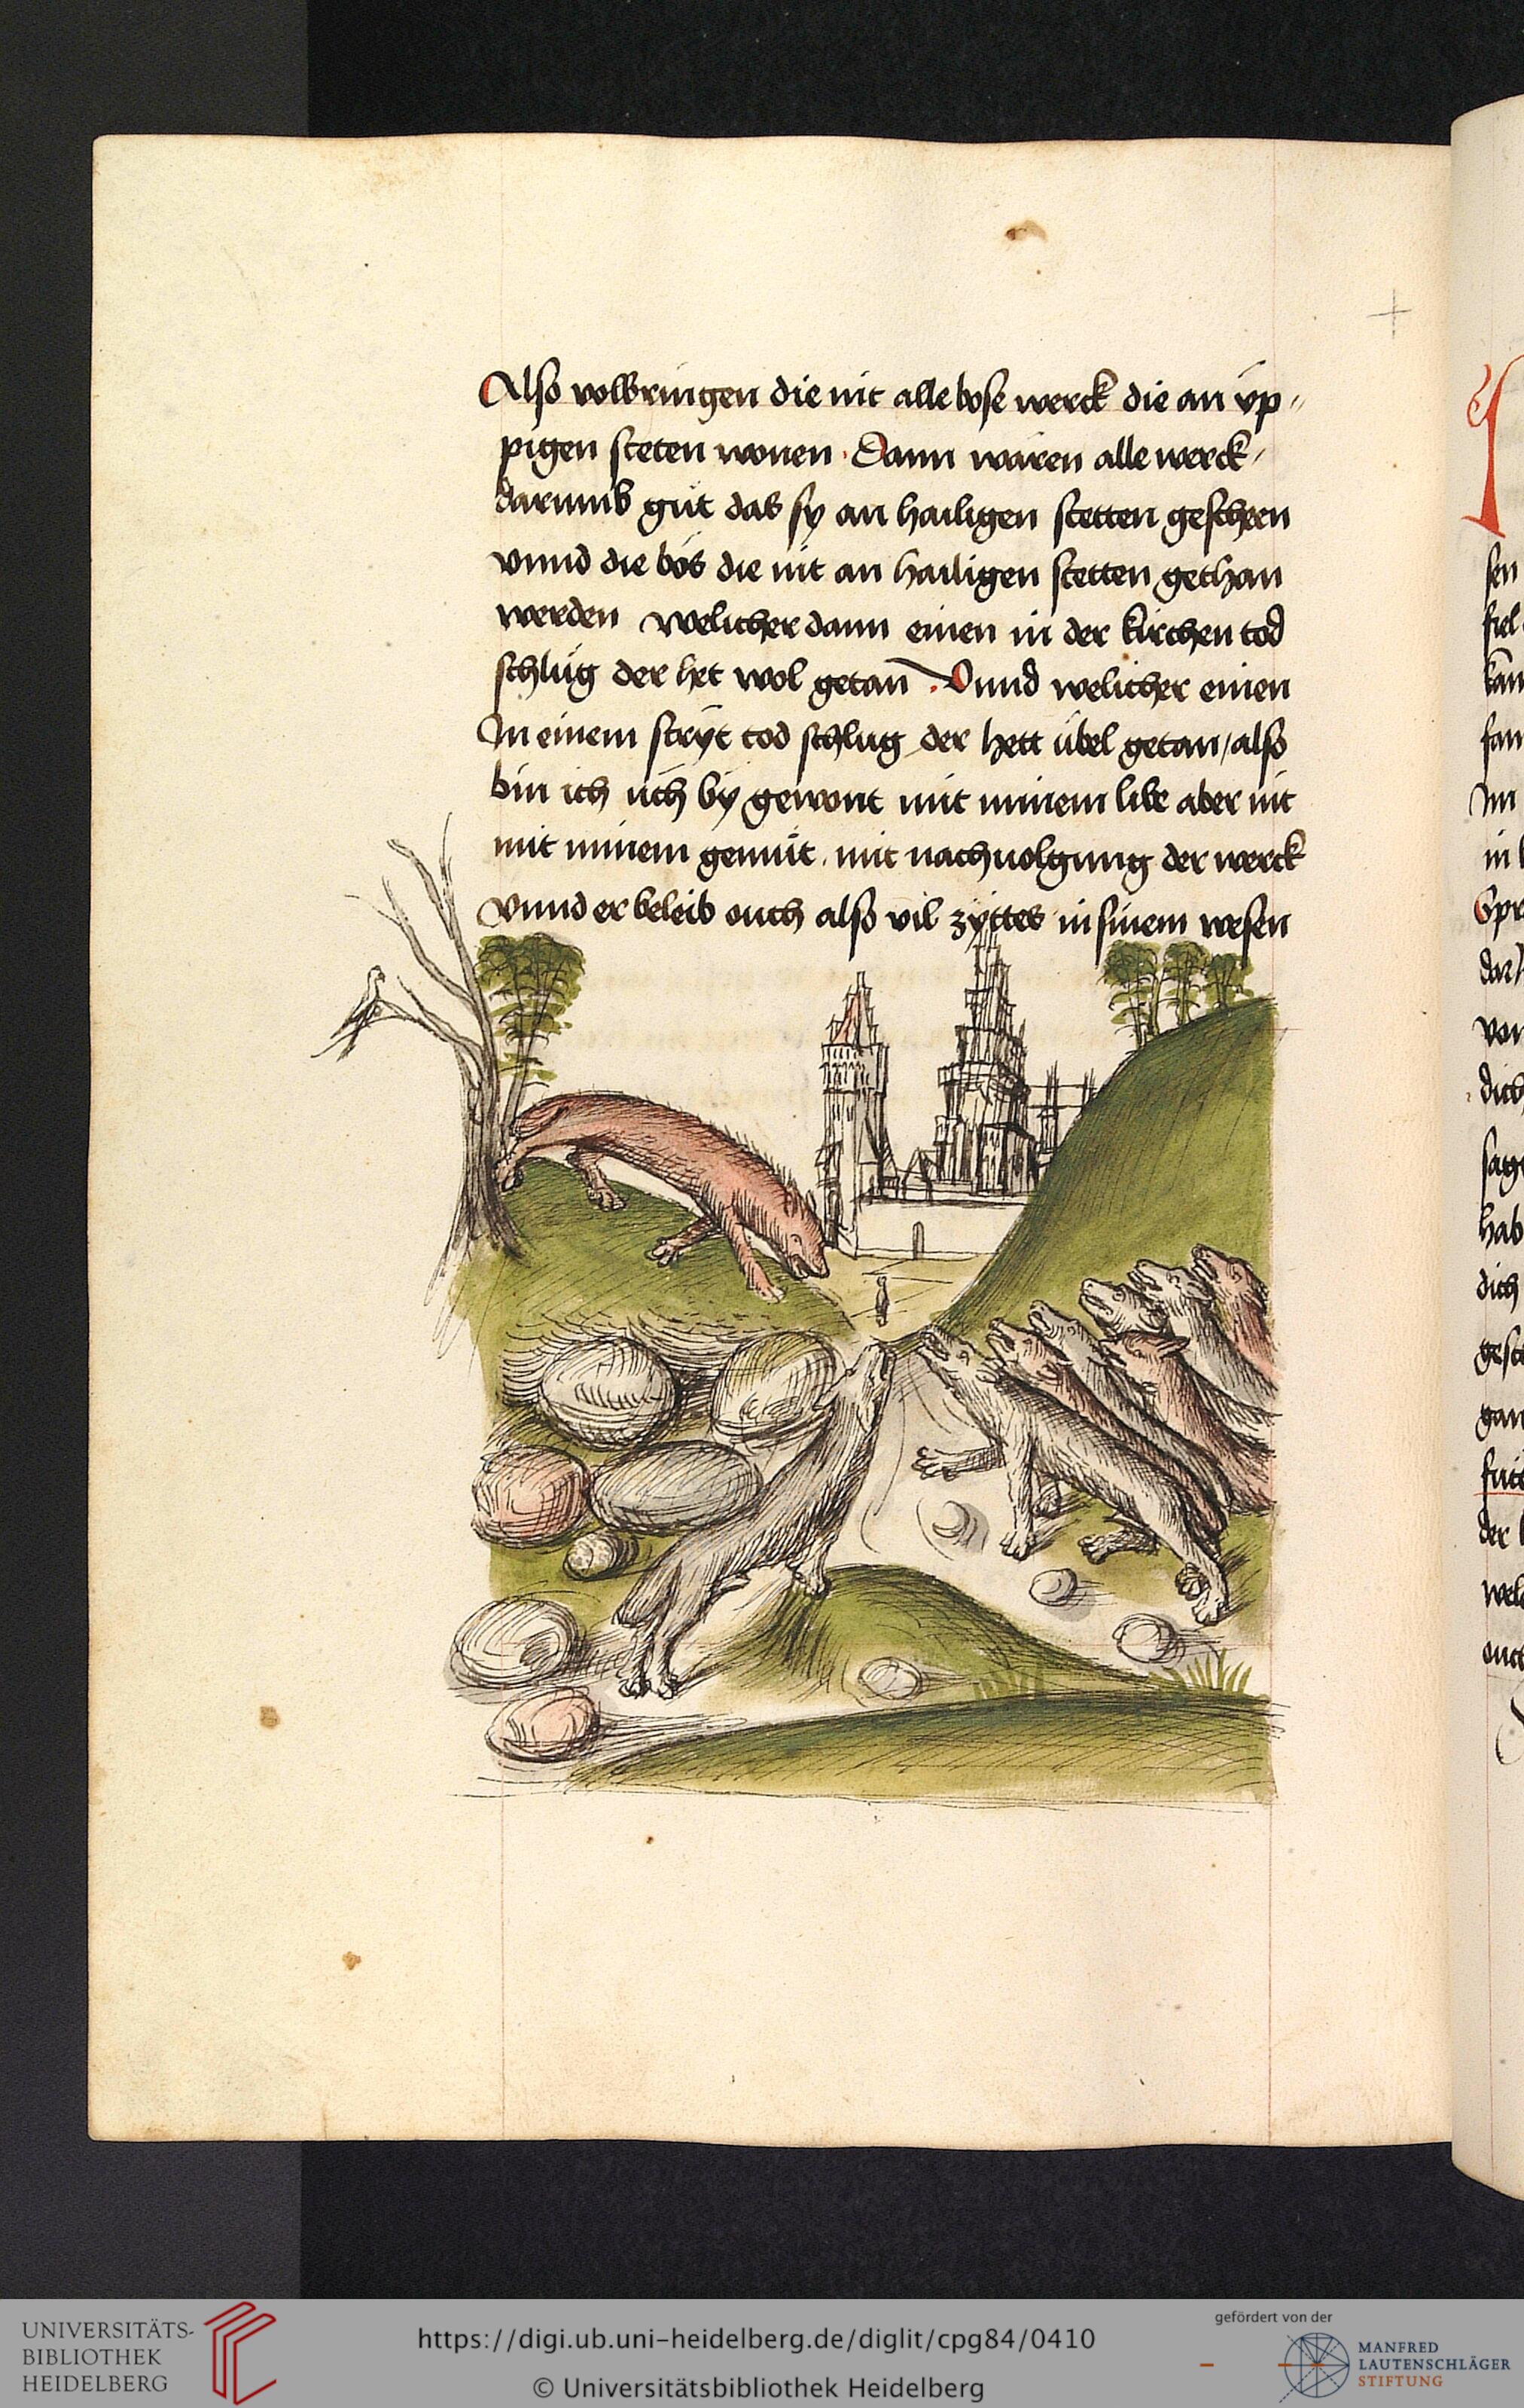 Also volbringen die nit alle bose werck die an üp-
pigen steten wonen. Dann wären alle werck
darumb gůt das sy an hailigen stetten gescheen
vnnd die bös die nit an hailigen stetten gethan
werden welicher dann einen in der kirchen tod
schlüg der het wol getan. Vnnd welicher einen
In einem stryt tod schlug der hett übel getan / also
bin ich üch by gewont mit minem libe aber nit
mit minem gemüt. mit nachuolgung der werck
Vnnd er beleib ouch also vil zyttes in sinem wesen
sen
fiel
kan
fan
Im
in
Spr
dar
von
dich
sag
hab
dich
gesc
gan
der
wel
UNIVERSITÄTS-
BIBLIOTHEK
HEIDELBERG
https://digi.ub.uni-heidelberg.de/diglit/cpg84/0410
© Universitätsbibliothek Heidelberg
gefördert von der
MANFRED
LAUTENSCHLÄGER
STIFTUNG